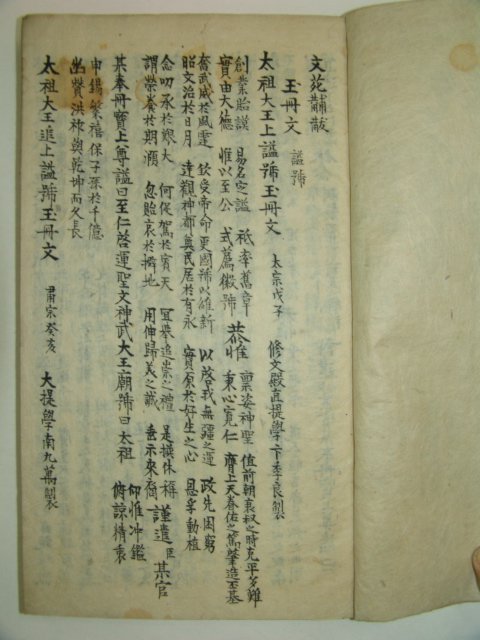 文苑黼黻
玉冊文 諡號
太祖大王上諡號玉冊文 太宗戊子 修文殿直提學卞季良製
創業貽謨 易名定諡 祗率舊章 恭惟 稟姿神聖 值前朝衰叔之時克平多難
實由大德 惟以至公 式薦徽號 秉心寬仁 膺上天眷佑之篤肇造丕基
奮武威於風霆 欽受帝命更國號以維新 以啓我無疆之運 政先困窮
昭文治於日月 達觀神都奠民居於有永 實原於好生之心 恩孚動植
念叨承於艱大 何促駕於賓天 冝舉追崇之禮 是摸休稱
謂榮養於期頤 忽貽哀於擗地 用伸歸美之誠 垂示來裔 謹遣臣某官
某奉冊寶上尊諡曰至仁啓運聖文神武大王廟號曰太祖 仰惟冲鑑 俯諒精衷
申錫繁禧保子孫於千億
幽贊洪祚與乾坤而久長
太祖大王追上諡號玉冊文 肅宗癸亥 大提學南九萬製